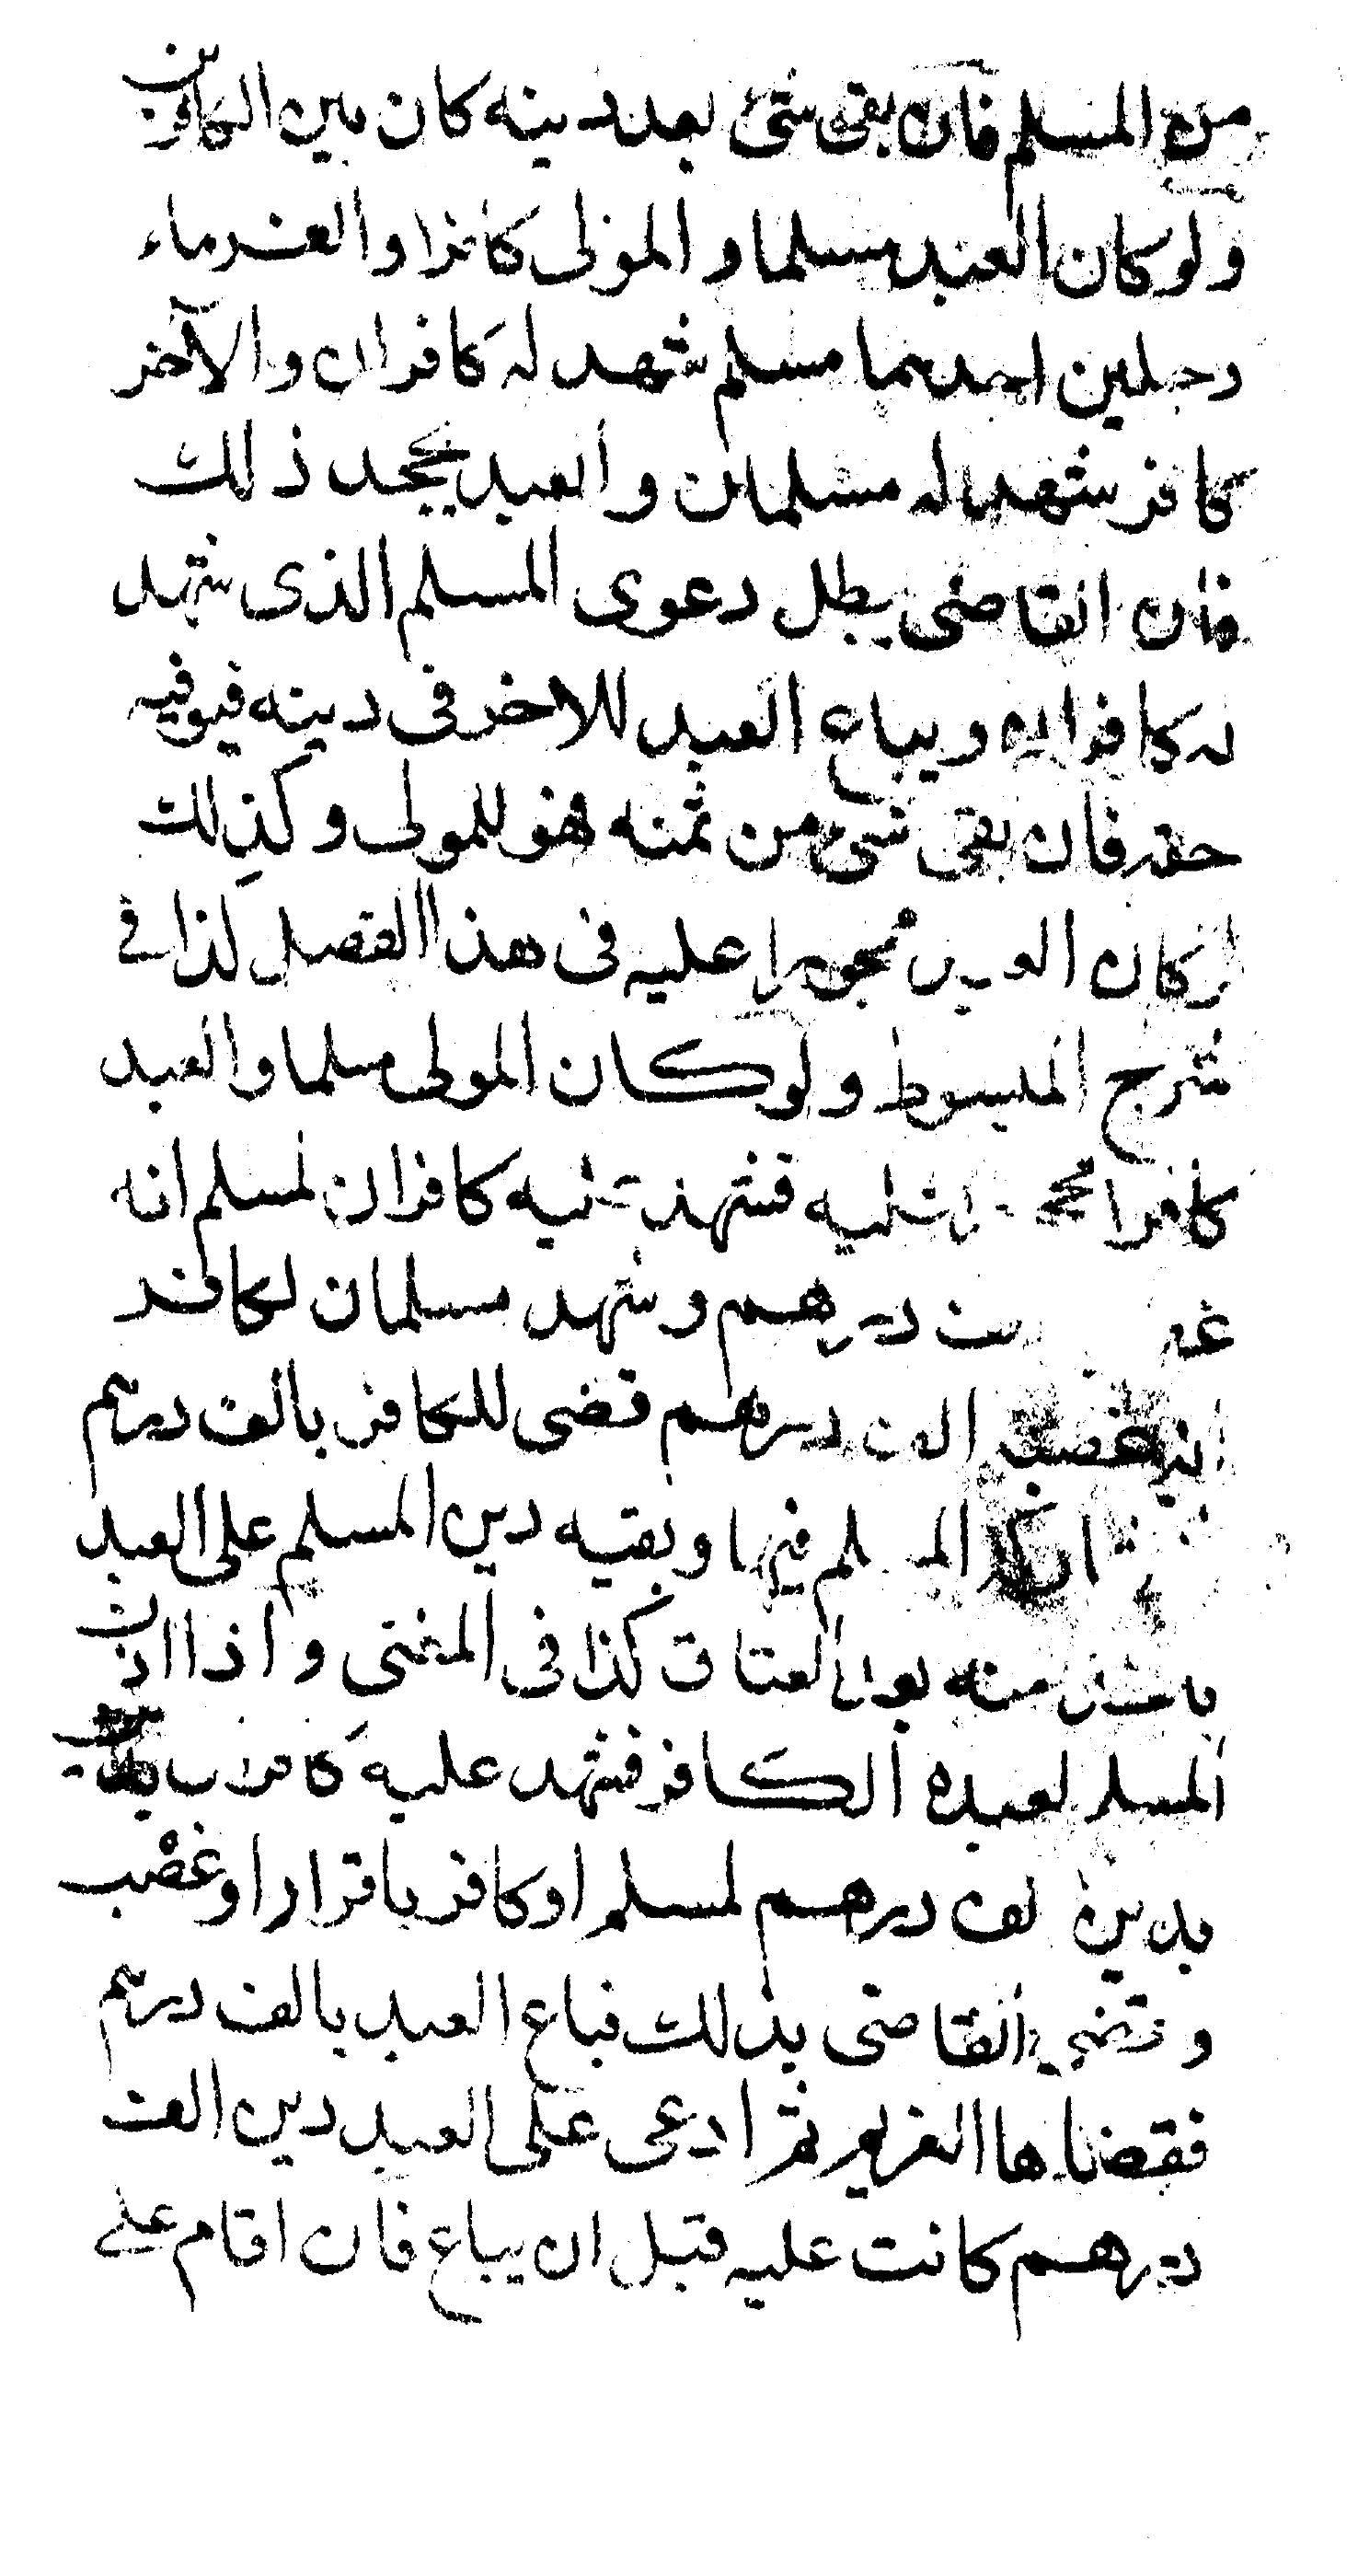 من المسلم فان بقى شئ بعد دينه كان بين الكافرين
ولوكان العبد مسلما و المولى كافرا والغرماء
رجلين احدهما مسلم شهد له كافران والآخر
كافر شهد له مسلمان والعبد يجحد ذلك
فان القاضى يبطل دعوى المسلم الذى شهد
له كافران ويباع العبد للاخر فى دينه فيوفيه
حقه فان بقى شئ من ثمنه فهو للمولى وكذلك
لوكان العبد محجورا عليه فى هذا الفصل كذا فى
شرح المبسوط ولوكان المولى مسلما والعبد
كافرا محجورا عليه فشهد عليه كافران لمسلم انه
غصبه درهم وشهد مسلمان لكافر
انه غصب الف درهم قضى للكافر بالف درهم
المسلم فيها وبقيه دين المسلم على العبد
منه بعد العتاق كذا فى المغنى واذا اذن
المسلم لعبده الكافر فشهد عليه كافران
بدين الف درهم لمسلم اوكافر باقرار اوغصب
وقضى القاضى بذلك فباع العبد بالف درهم
فقضاها الغريم ثم ادعى على العبد دين الف
درهم كانت عليه قبل ان يباع فان اقام على